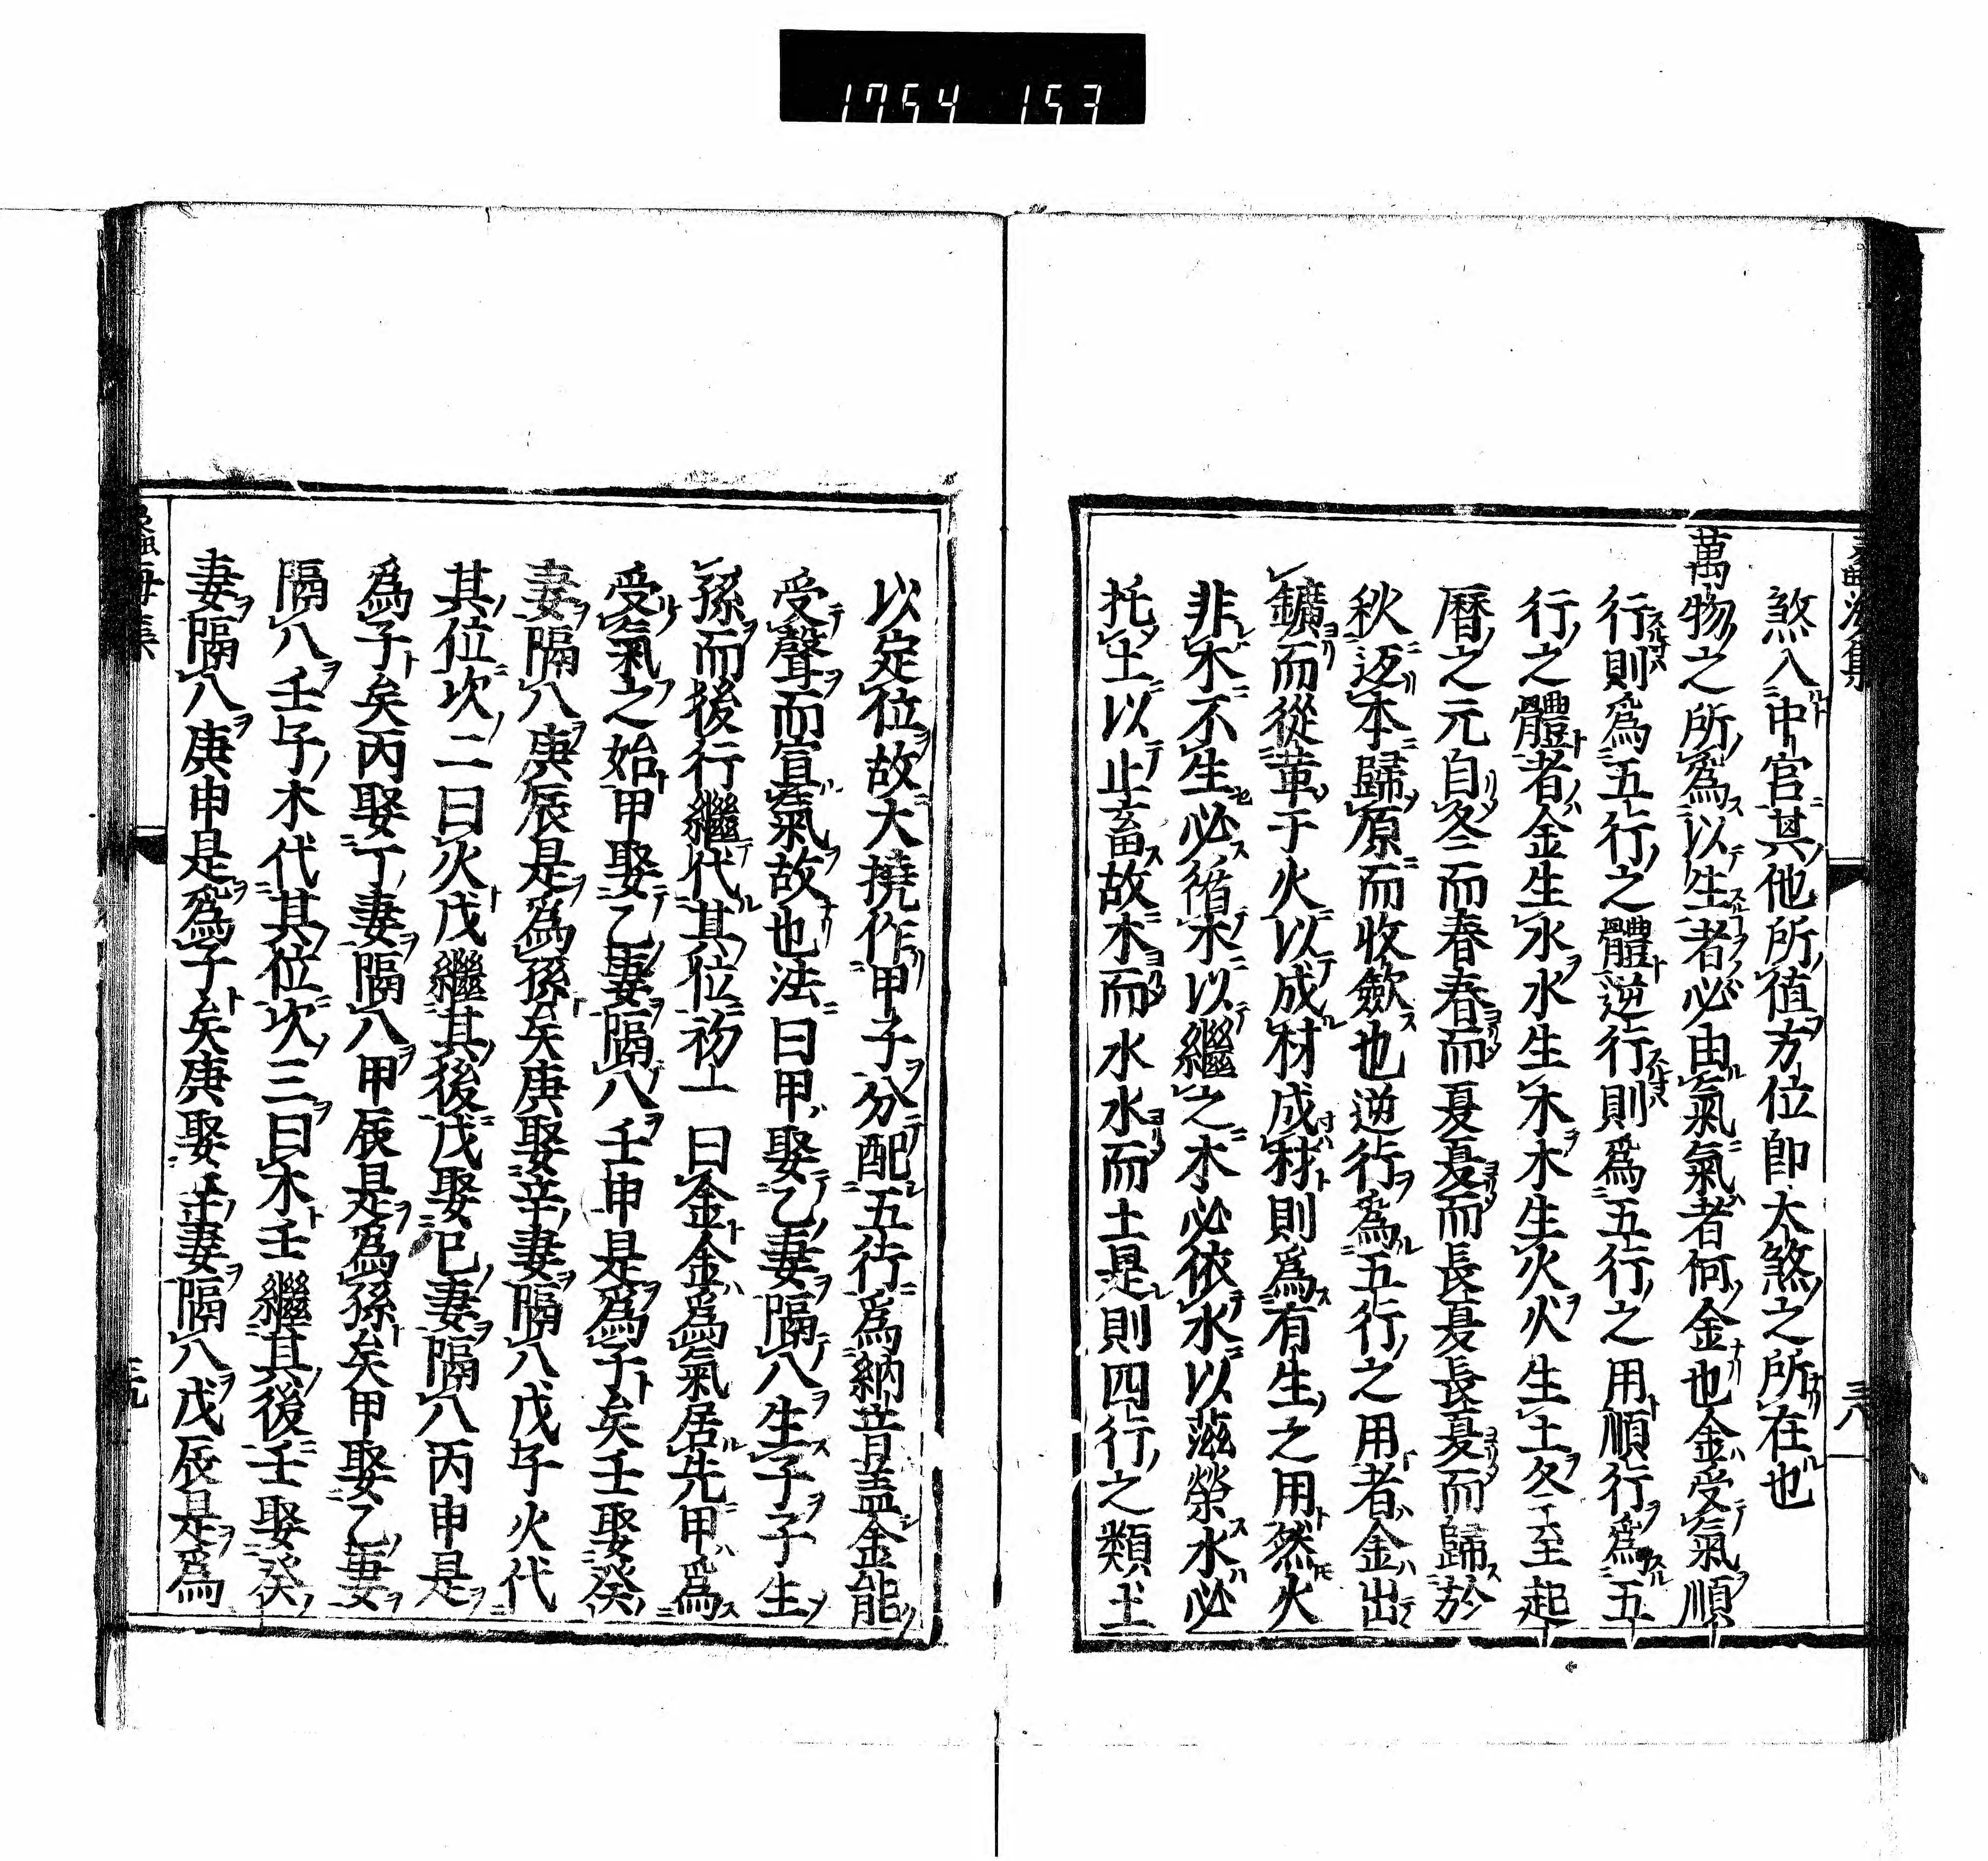 1754 153
煞入中宮其他所値方位即大煞之所在也
萬物之所爲以生者必由氣氣者何金也金受氣順
行則爲五行之體逆行則爲五行之用順行爲五
行之體者金生水水生木木生火火生土冬至起
曆之元自冬而春春而夏夏而長夏長夏而歸於
秋返本歸原而收斂也逆行爲五行之用者金出
鑛而從革于火以成材成材則爲有生之用然火
非木不生必循木以繼之木必依水以滋榮水必
托土以止畜故木而水水而土是則四行之類土
以定位故大撓作甲子分配五行爲納音蓋金能
受聲而宣氣故也法曰甲娶乙妻隔八生子子生
孫而後行繼代其位初一曰金金爲氣居先甲爲
受氣之始甲娶乙妻隔八壬申是爲子矣壬娶癸
妻隔八庚辰是爲孫矣庚娶辛妻隔八戊子火代
其位次二曰火戊繼其後戊娶己妻隔八丙申是
爲子矣丙娶丁妻隔八甲辰是爲孫矣甲娶乙妻
隔八壬子木代其位次三曰木壬繼其後壬娶癸
妻隔八庚申是爲子矣庚娶辛妻隔八戊辰是爲